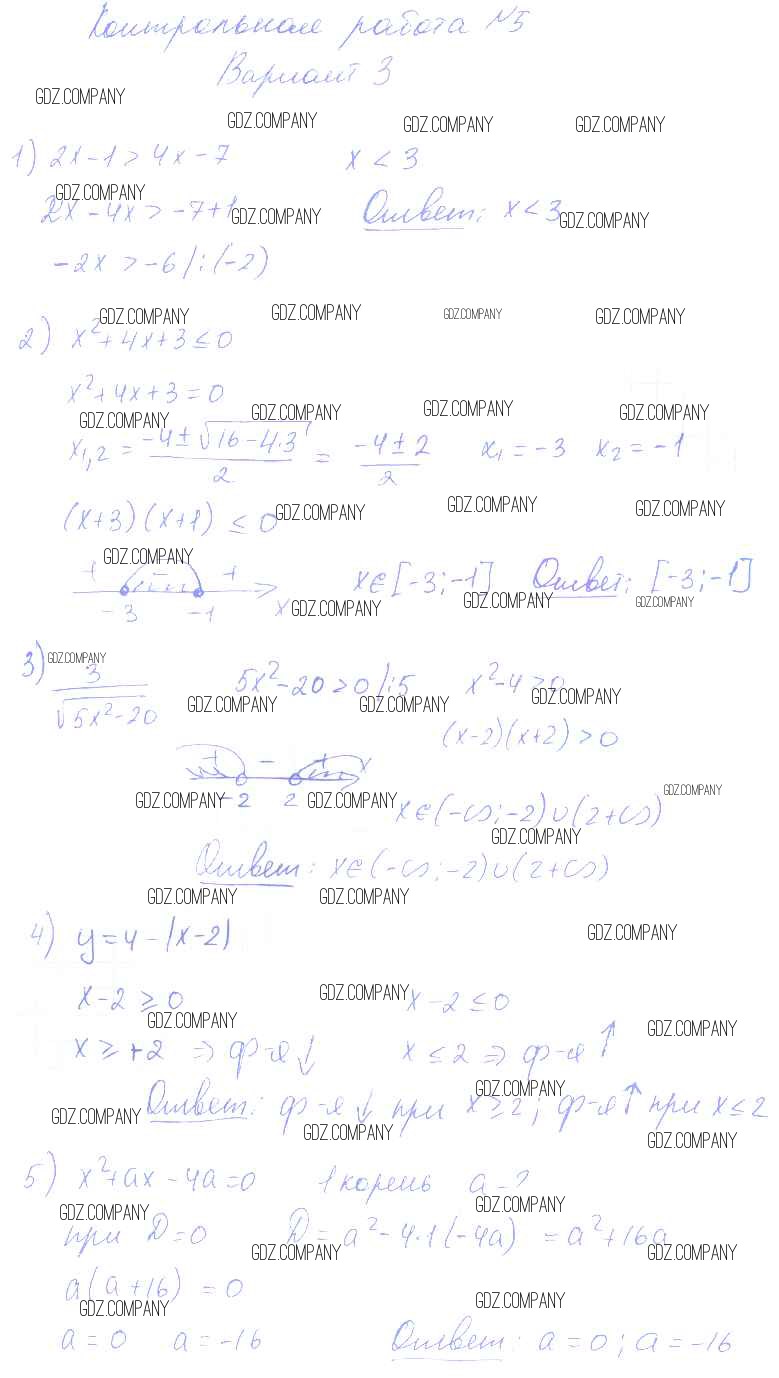 Контрольная работа №5
Вариант 3
GDZ.COMPANY
GDZ.COMPANY GDZ.COMPANY GDZ.COMPANY
1) 2x-1 > 4x-7 x < 3
GDZ.COMPANY
2x - 4x > -7+1 GDZ.COMPANY Ответ: x < 3 GDZ.COMPANY
-2x > -6 |:(-2)
GDZ.COMPANY GDZ.COMPANY GDZ.COMPANY GDZ.COMPANY
2) x²+4x+3 ≤ 0
x²+4x+3 = 0
GDZ.COMPANY GDZ.COMPANY GDZ.COMPANY GDZ.COMPANY
x₁,₂ = (-4 ± √(16-4·3))/2 = (-4±2)/2 x₁ = -3 x₂ = -1
(x+3)(x+1) ≤ 0 GDZ.COMPANY GDZ.COMPANY GDZ.COMPANY
GDZ.COMPANY
+ - + x∈[-3;-1] Ответ: [-3;-1]
-3 -1 x GDZ.COMPANY GDZ.COMPANY GDZ.COMPANY
3) GDZ.COMPANY
3/√(5x²-20) 5x²-20 > 0 |:5 x²-4 > 0
GDZ.COMPANY GDZ.COMPANY GDZ.COMPANY
(x-2)(x+2) > 0
+ - + x
GDZ.COMPANY -2 2 GDZ.COMPANY x∈(-∞;-2)∪(2+∞) GDZ.COMPANY
GDZ.COMPANY
Ответ: x∈(-∞;-2)∪(2+∞)
GDZ.COMPANY GDZ.COMPANY
4) y = 4 - |x-2| GDZ.COMPANY
x-2 ≥ 0 GDZ.COMPANY x-2 ≤ 0
GDZ.COMPANY GDZ.COMPANY
x ≥ +2 ⇒ ф-я ↓ x ≤ 2 ⇒ ф-я ↑
GDZ.COMPANY
GDZ.COMPANY Ответ: ф-я ↓ при x ≥ 2; ф-я ↑ при x ≤ 2
GDZ.COMPANY GDZ.COMPANY
5) x²+ax-4a=0 1 корень a - ?
GDZ.COMPANY GDZ.COMPANY
при D=0 D = a²-4·1(-4a) = a²+16a
GDZ.COMPANY GDZ.COMPANY
a(a+16) = 0
GDZ.COMPANY GDZ.COMPANY
a = 0 a = -16 Ответ: a = 0; a = -16